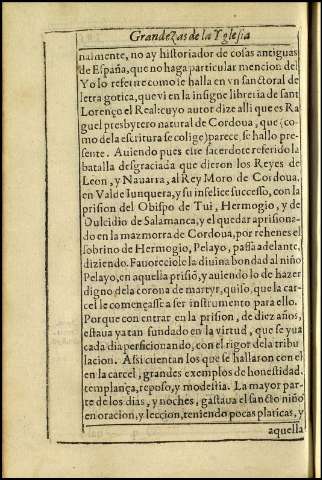 Grandezas de la Yglesia
nalmente, no ay historiador de cosas antiguas
de España, que no haga particular mencion del
Yo lo referire como ie halla en vn sanctoral de
letra gotica, que vi en la insigne libreria de sant
Lorenço el Real: cuyo autor dize alli que es Ra
guel presbytero natural de Cordoua, que (co-
mo dela escritura se colige) parece se hallo pre-
sente. Auiendo pues este sacerdote referido la
batalla desgraciada que dieron los Reyes de
Leon, y Nauarra, al Rey Moro de Cordoua,
en Val de Iunquera, y su infelice successo, con la
prision del Obispo de Tui, Hermogio, y de
Dulcidio de Salamanca, y el quedar aprisiona-
do en la mazmorra de Cordoua, por rehenes el
sobrino de Hermogio, Pelayo, passa adelante,
diziendo. Fauorecio le la diuina bondad al niño
Pelayo, en aquella prisiō, y auiendo lo de hazer
digno dela corona de martyr, quiso, que la car-
cel le començasse a ser instrumento para ello.
Porque con entrar en la prision, de diez años,
estaua ya tan fundado en la virtud, que se yua
cada dia perficionando, con el rigor dela tribu
lacion. Assi cuentan los que se hallaron con el
en la carcel, grandes exemplos de honestidad,
templança, reposo, y modestia. La mayor par-
te de los dias, y noches, gastaua el sancto niño
en oracion, y leccion, teniendo pocas platicas, y
aquella